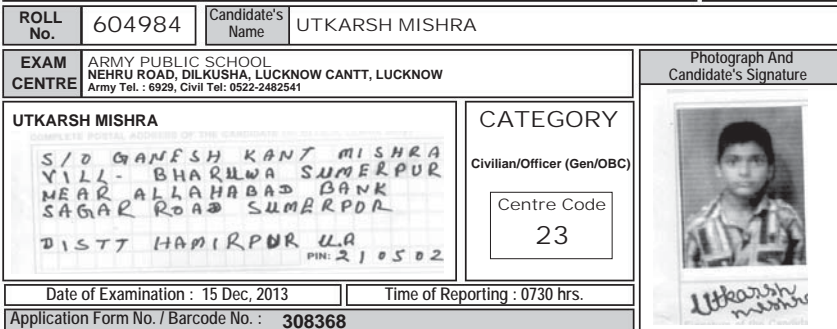 ROLL No. 604984 Candidate's Name UTKARSH MISHRA
EXAM CENTRE
ARMY PUBLIC SCHOOL
NEHRU ROAD, DILKUSHA, LUCKNOW CANTT, LUCKNOW
Army Tel. : 6929, Civil Tel: 0522-2482541
Photograph And
Candidate's Signature
UTKARSH MISHRA
COMPLETE POSTAL ADDRESS OF THE CANDIDATE
S/O GANESH KANT MISHRA
VILL- BHARUWA SUMERPUR
NEAR ALLAHABAD BANK
SAGAR ROAD SUMERPUR
DISTT HAMIRPUR U.P
PIN: 210502
CATEGORY
Civilian/Officer (Gen/OBC)
Centre Code
23
Utkarsh
mishra
Date of Examination : 15 Dec, 2013 Time of Reporting : 0730 hrs.
Application Form No. / Barcode No. : 308368